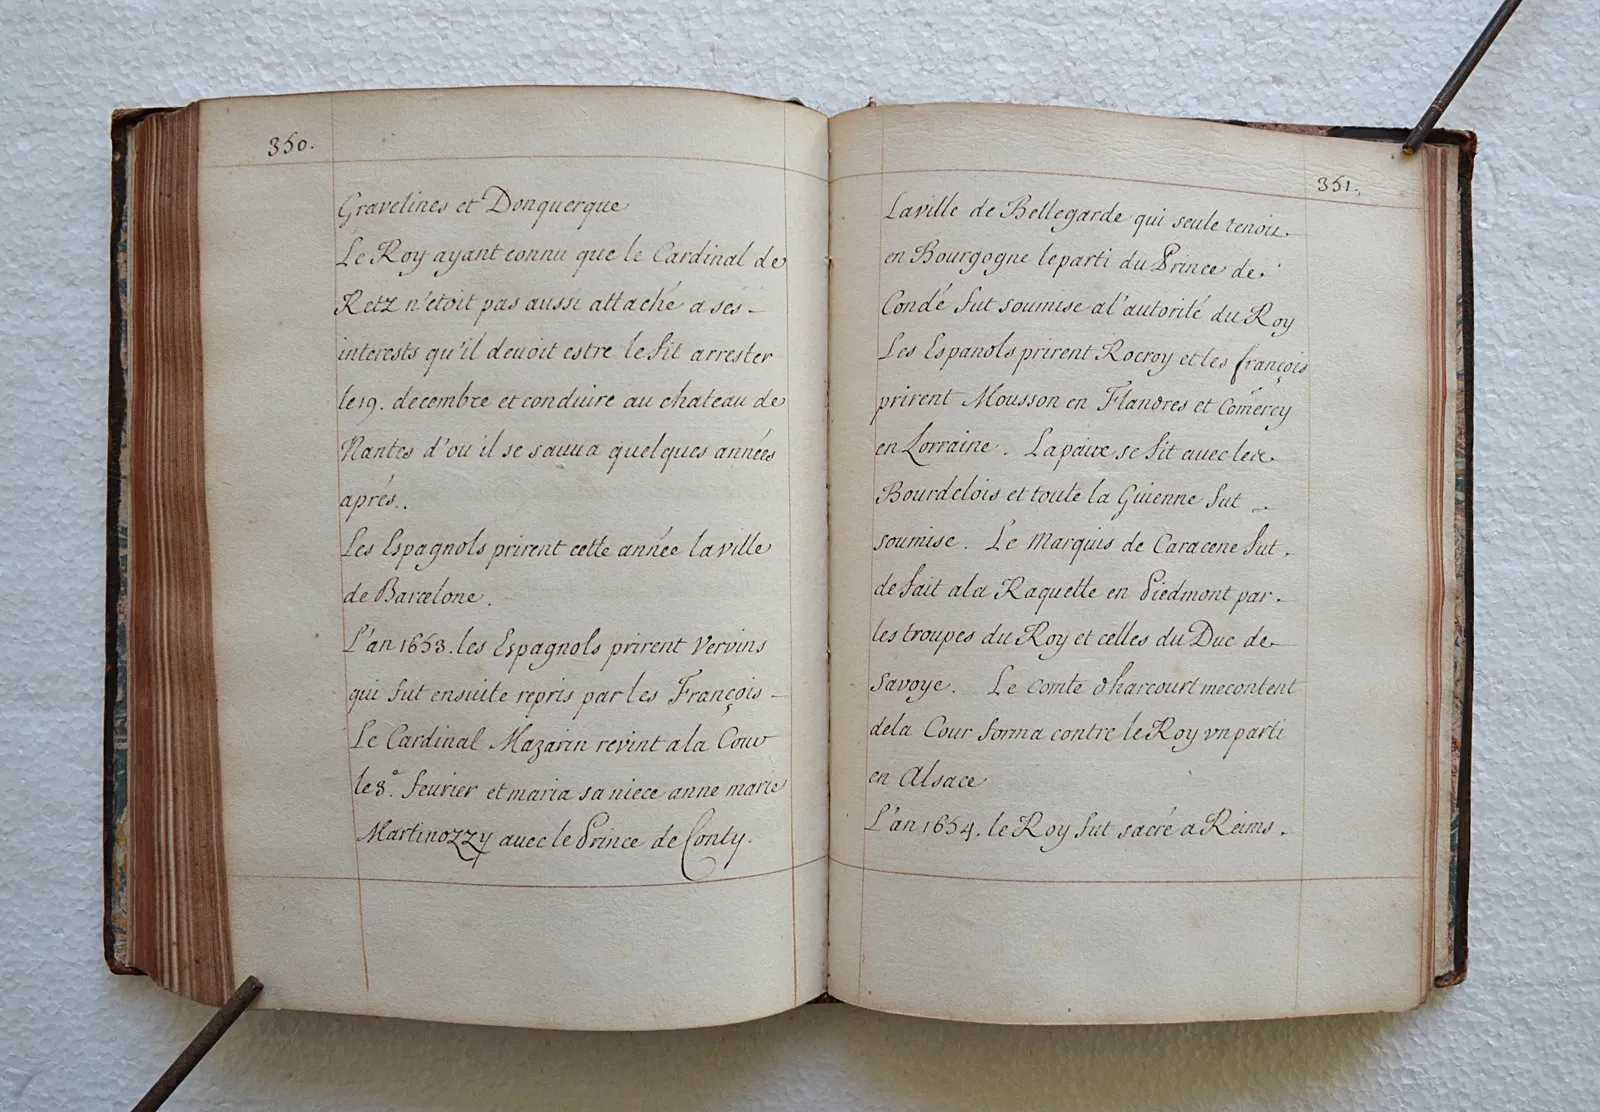 350.
Gravelines et Donquerque
Le Roy ayant connu que le Cardinal de
Retz n'etoit pas aussi attaché a ses
interests qu'il deuoit estre le fit arrester
le 19. decembre et conduire au chateau de
Nantes d'ou il se sauua quelques années
aprés.
Les Espagnols prirent cette année la ville
de Barcelone.
L'an 1653. les Espagnols prirent Vervins
qui fut ensuite repris par les François
Le Cardinal Mazarin revint a la Cour
le 3.º feurier et maria sa niece anne marie
Martinozzy auec le Prince de Conty.
351.
La ville de Bellegarde qui seule tenoit
en Bourgogne le parti du Prince de
Condé fut soumise a l'autorité du Roy
Les Espanols prirent Rocroy et les françois
prirent Mousson en Flandres et Comércy
en Lorraine. La paix se fit auec les
Bourdelois et toute la Guienne fut
soumise. Le Marquis de Caracene fut
de fait a la Raquette en Piedmont par
les troupes du Roy et celles du Duc de
Savoye. Le Comte d'harcourt mecontent
de la Cour forma contre le Roy vn parti
en Alsace
L'an 1654. le Roy fut sacré a Reims.